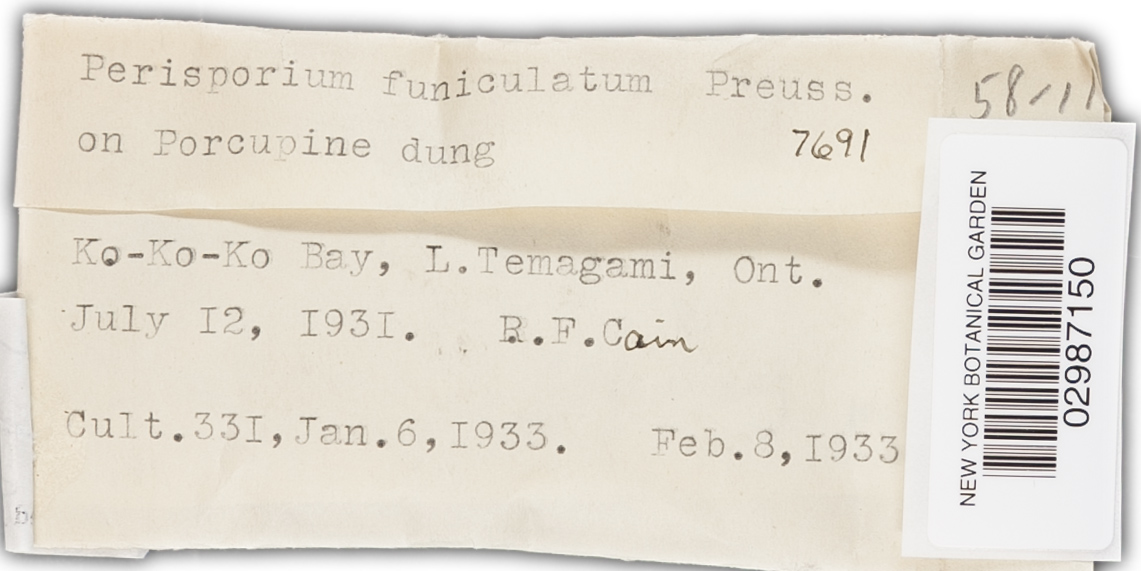 Perisporium funiculatum Preuss.
58-11
on Porcupine dung 7691
Ko-Ko-Ko Bay, L.Temagami, Ont.
July I2, I93I. R.F.Cain
Cult.33I,Jan.6,I933. Feb.8,I933
NEW YORK BOTANICAL GARDEN
02987150